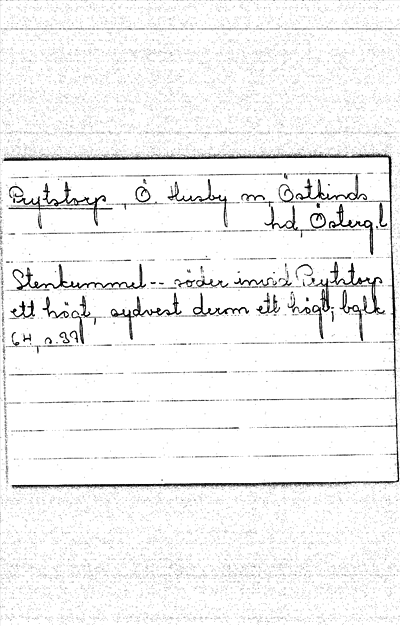 Prytstorp, Ö. Husby sn, Östkinds
hd, Östergl
Stenkummel -- söder invid Prytstorp
ett högt, sydvest derom ett högt; bglk
64, s. 39